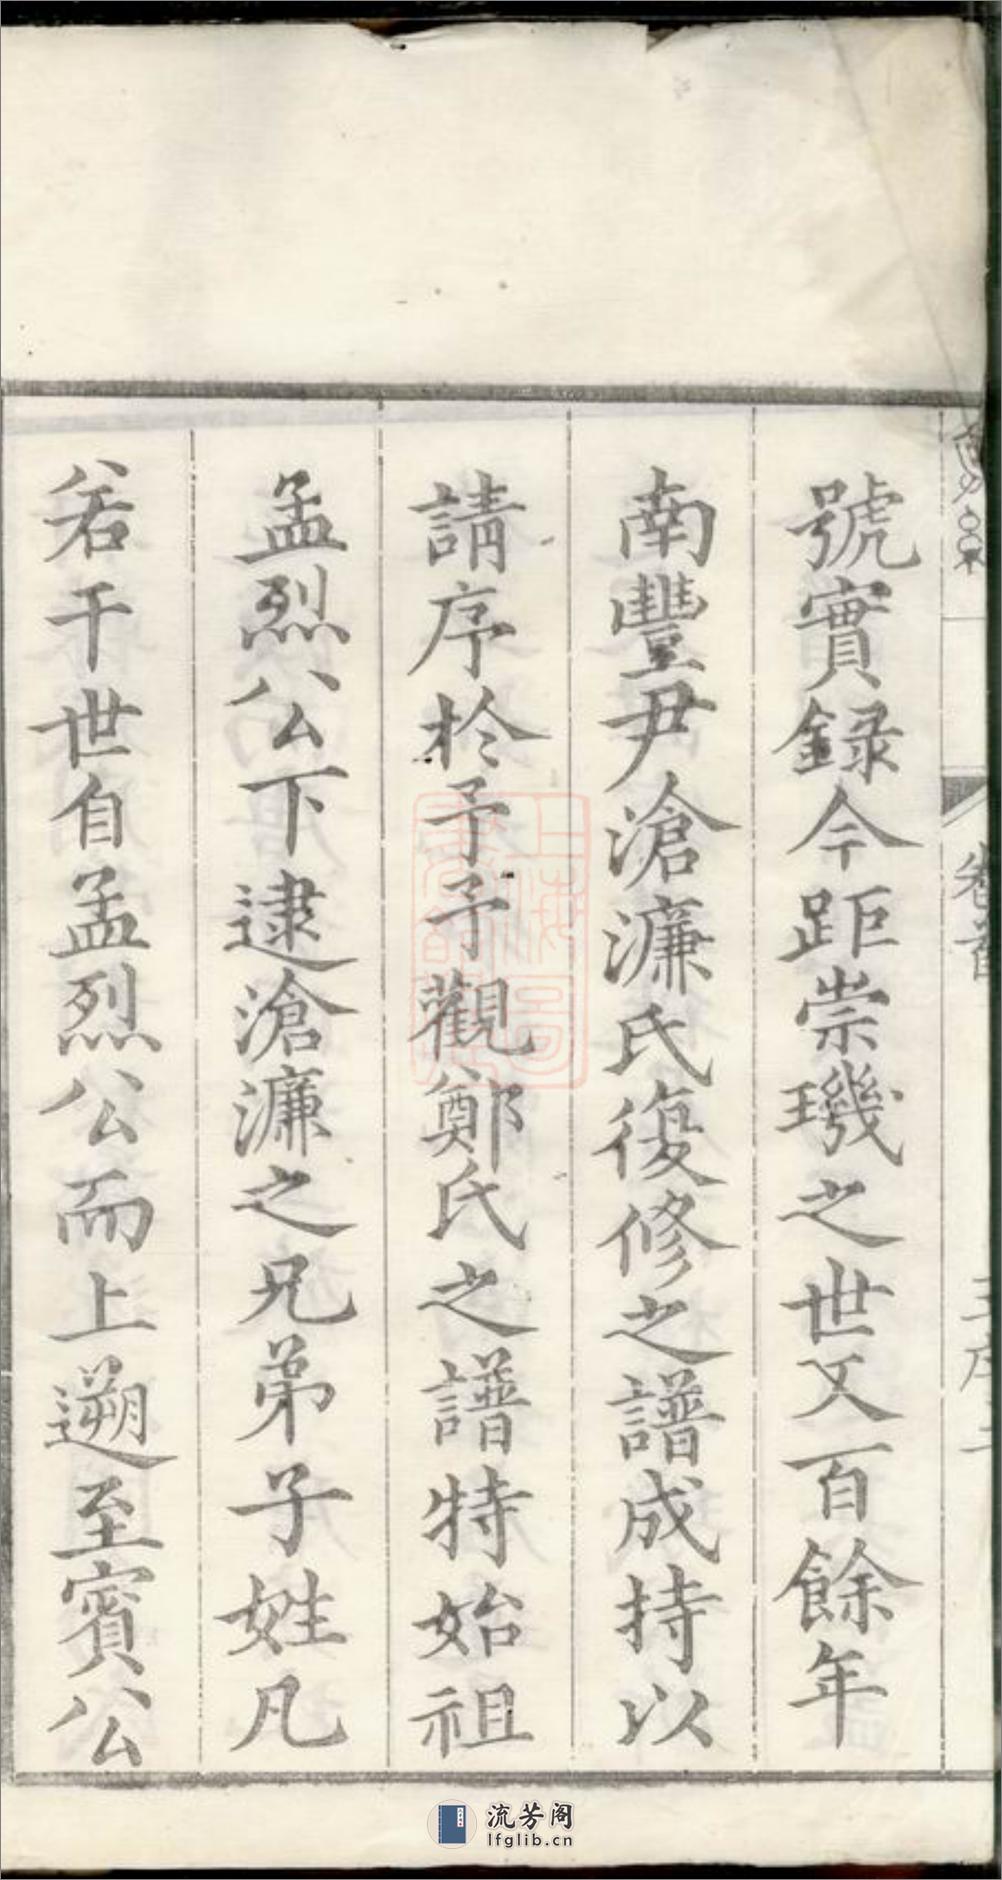 號實録今距崇璣之世又百餘年
南豐尹滄濂氏復修之譜成持以
請序於予予觀鄭氏之譜特始祖
孟烈公下逮滄濂之兄弟子姓凡
若干世自孟烈公而上遡至賓公
卷首
流芳阁
lfglib.cn